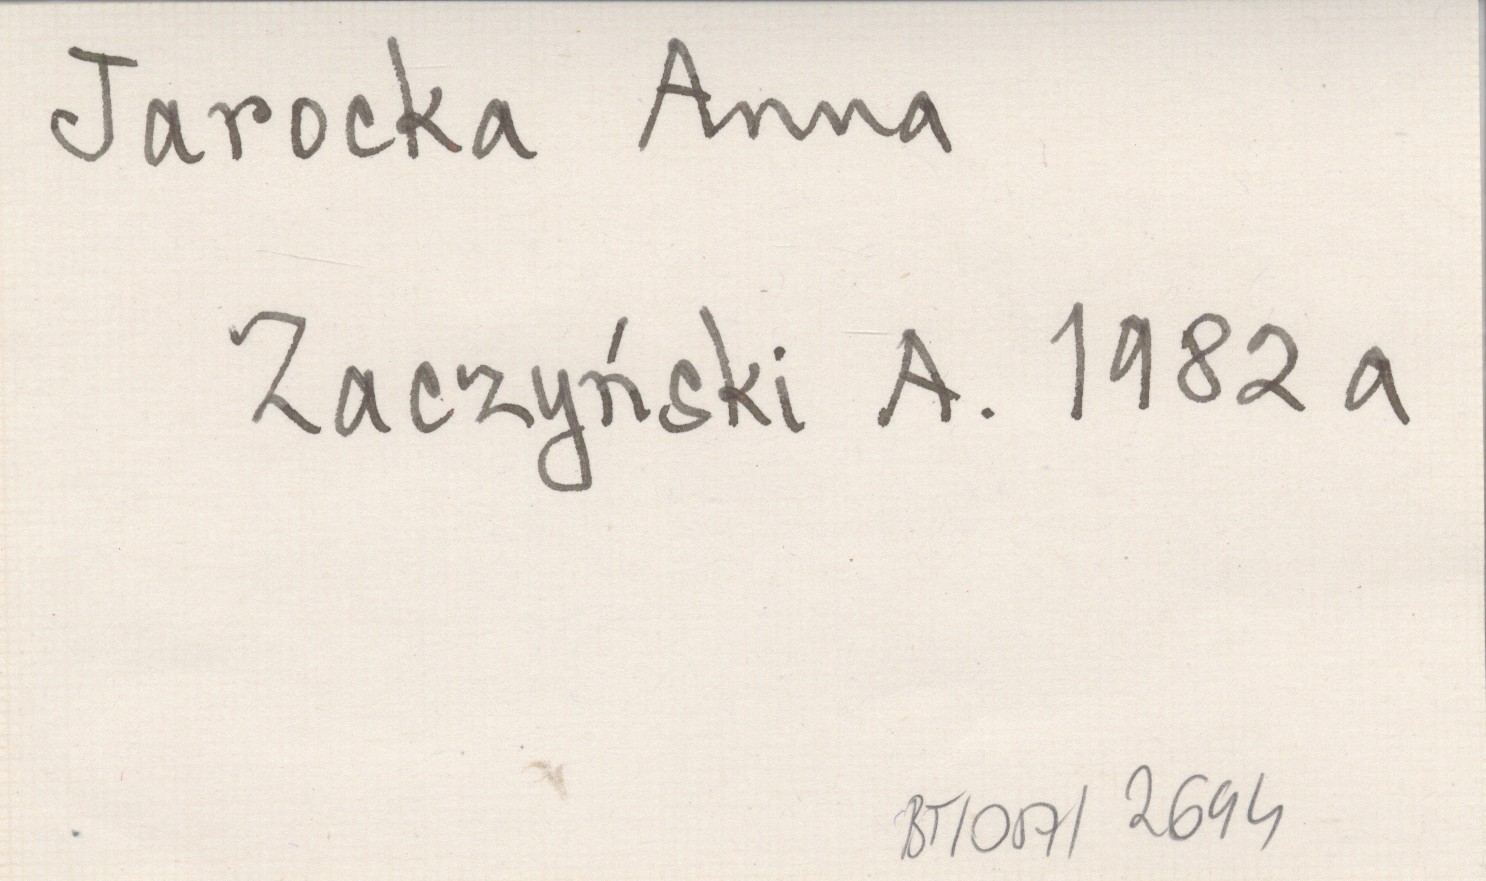 Jarocka Anna
Zaczyński A. 1982 a
2694